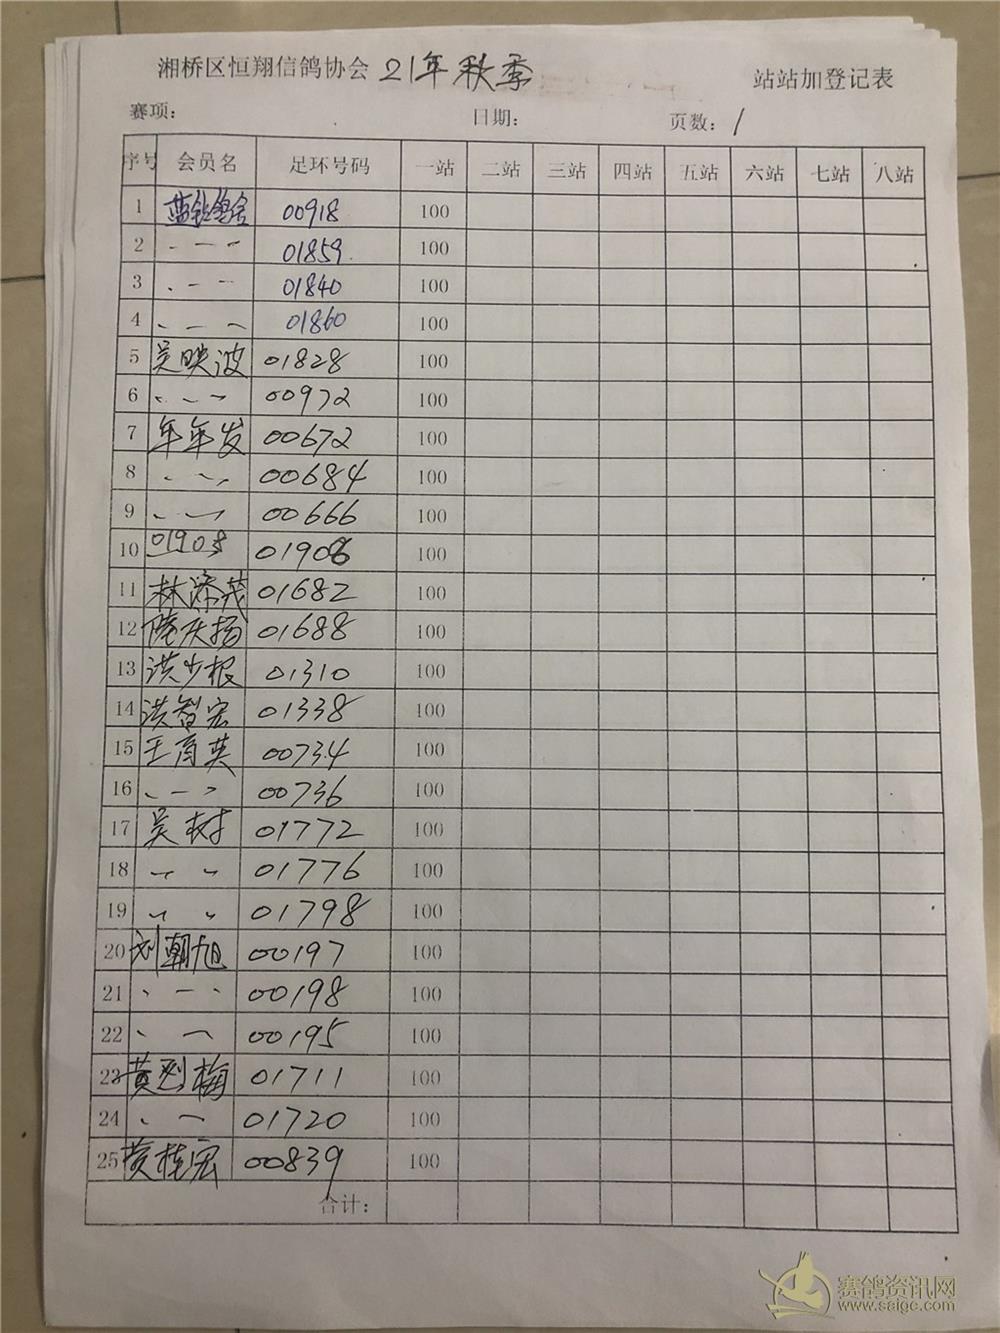 湘桥区恒翔信鸽协会 21年秋季 站站加登记表
赛项: 日期: 页数: 1
序号 会员名 足环号码 一站 二站 三站 四站 五站 六站 七站 八站
1 00918 100
2 、一一 01859 100
3 、一一 01840 100
4 、一一 01860 100
5 吴映波 01828 100
6 、、一 00972 100
7 年年发 00672 100
8 、、、 00684 100
9 、、一 00666 100
10 01908 01908 100
11 林添茂 01682 100
12 陈庆扬 01688 100
13 洪少根 01310 100
14 洪智宏 01338 100
15 王育英 00734 100
16 、一、 00736 100
17 吴树 01772 100
18 、、 01776 100
19 、、 01798 100
20 刘朝旭 00197 100
21 、一、 00198 100
22 、一 00195 100
23 黄烈梅 01711 100
24 、一 01720 100
25 黄桂宏 00839 100
合计:
赛鸽资讯网
www.saigc.com